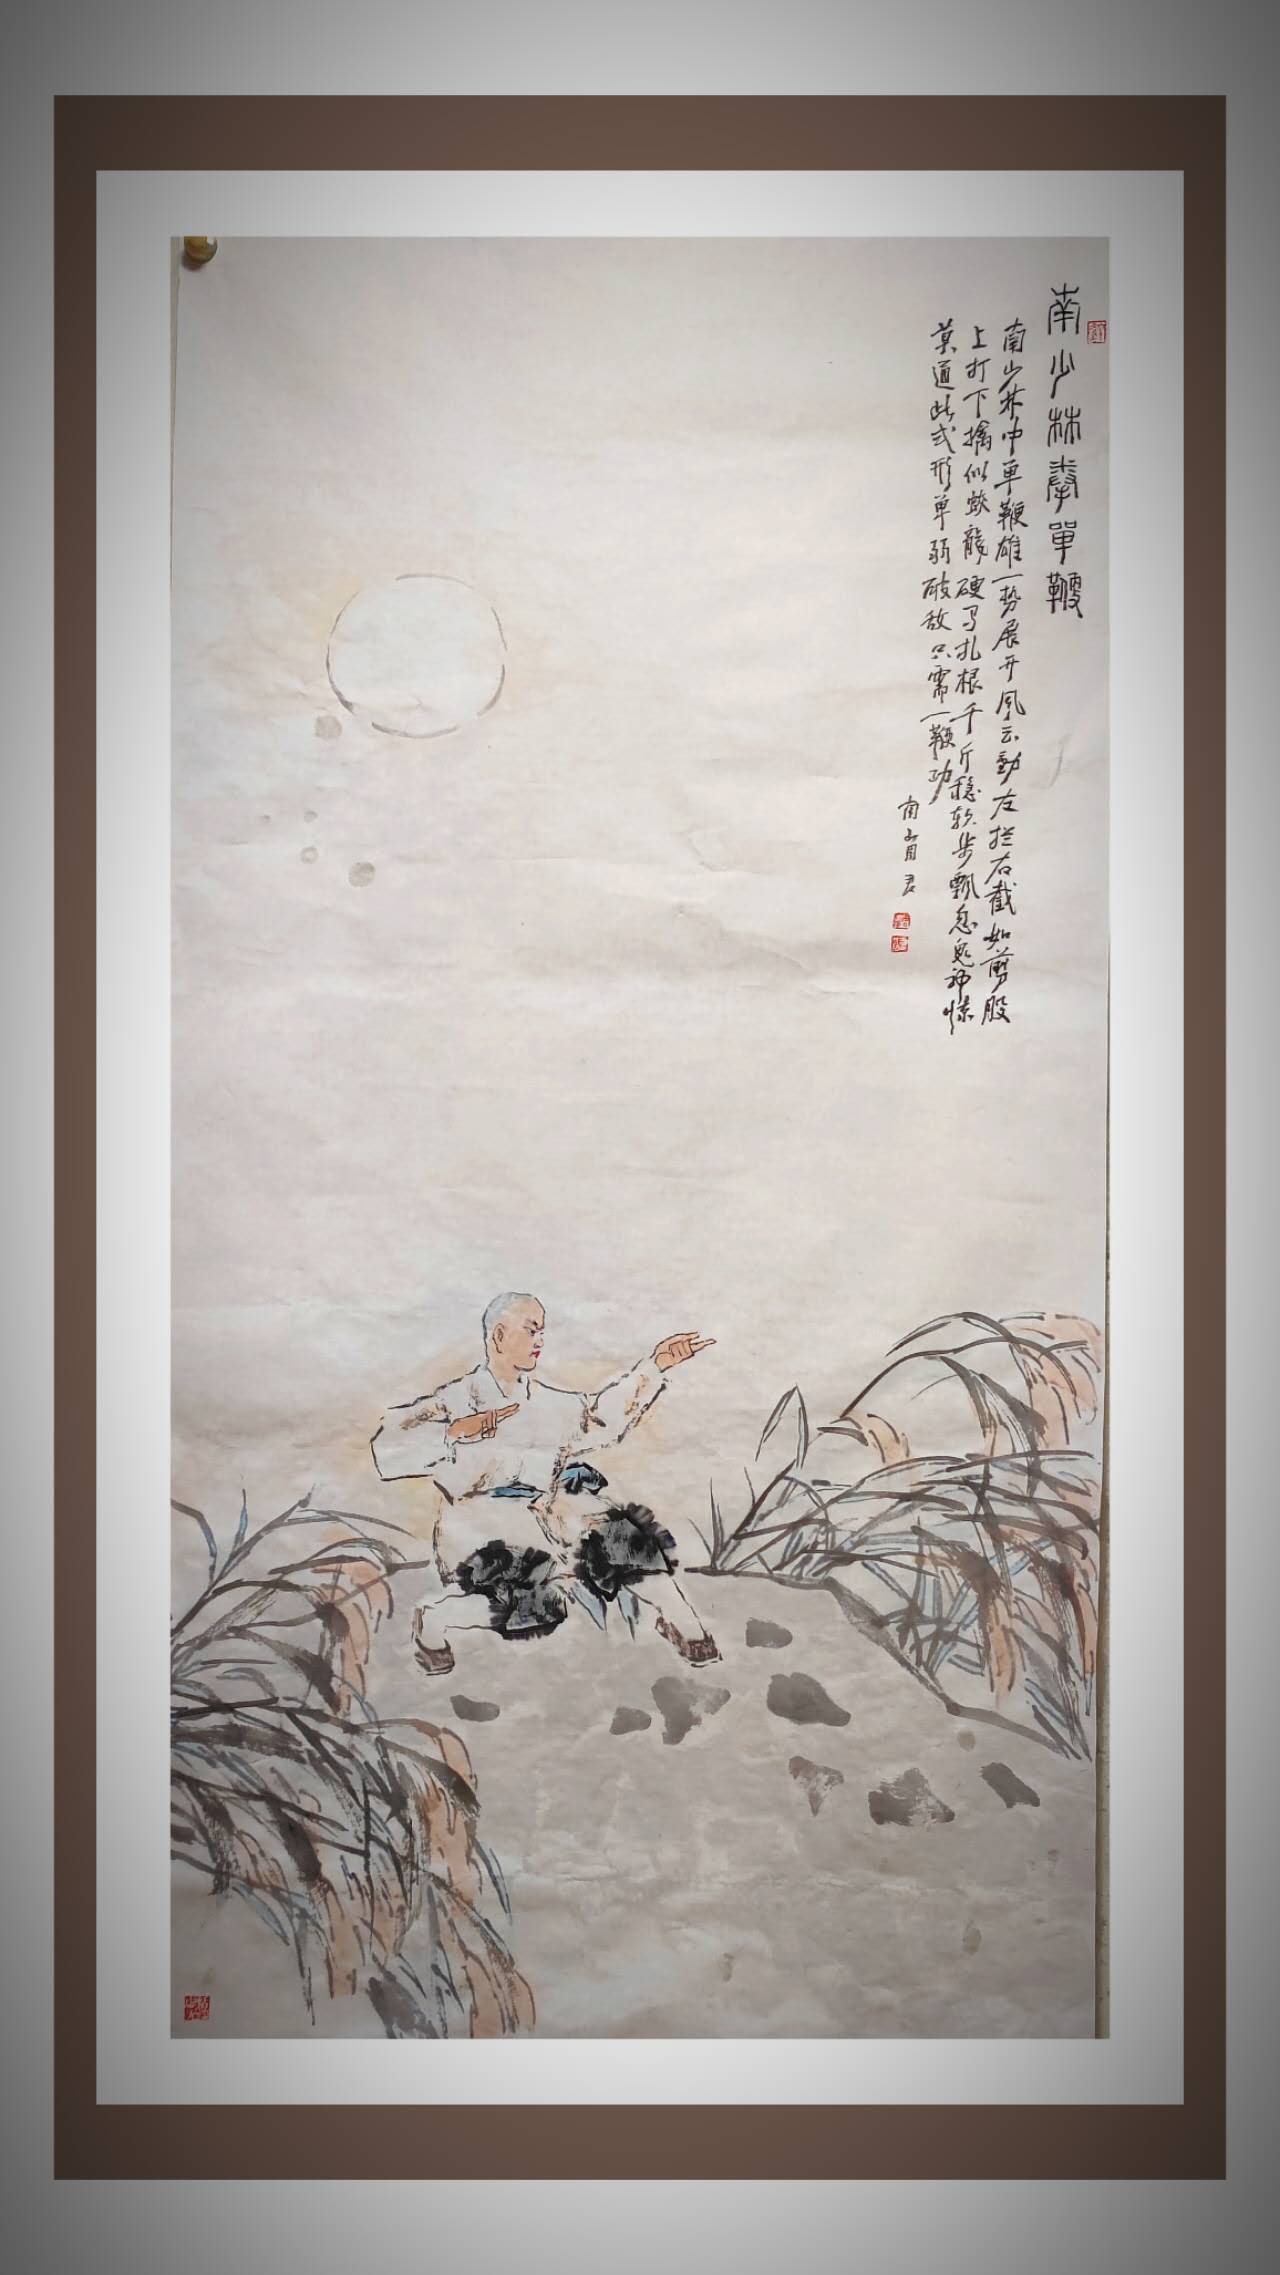 南少林拳單鞭
南少林中单鞭雄一势展开风云動左拦右截如剪股
上打下擒似蛟龍硬马扎根千斤稳软步飘忽鬼神惊
莫道此式形单弱破敌只需一鞭功